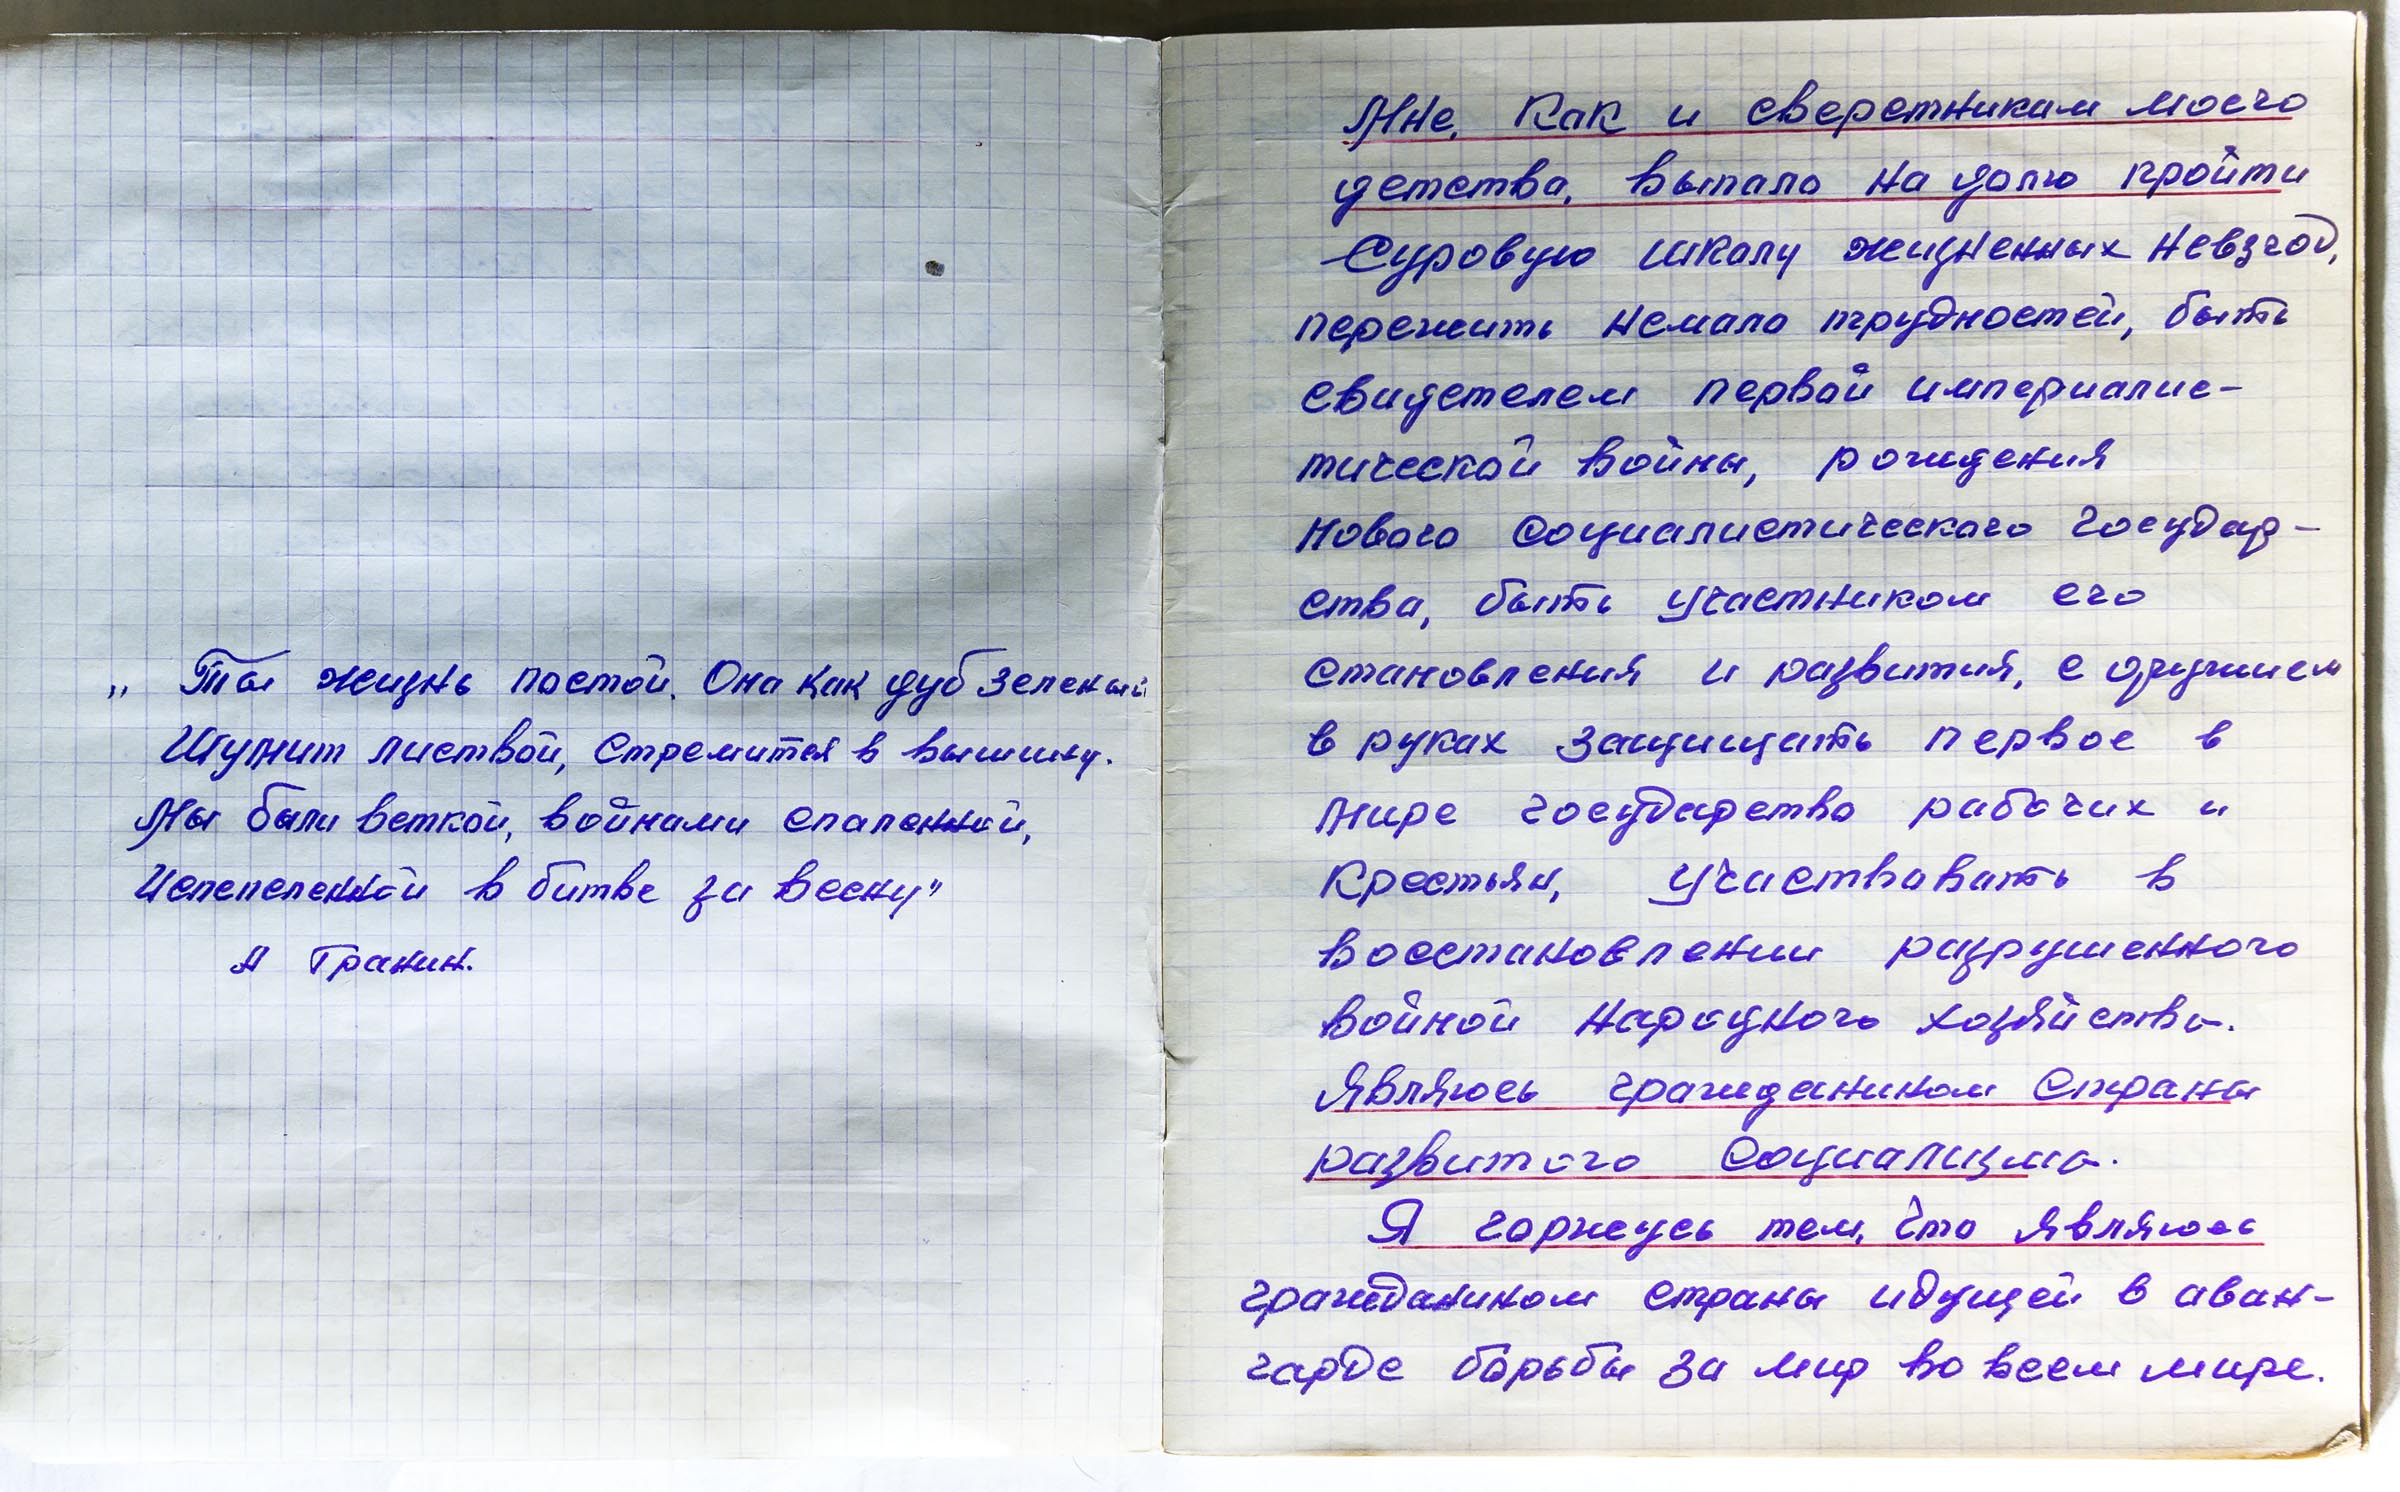 „ Ты жизнь постой. Она как дуб зеленый
Шумит листвой, стремится в вышину.
Мы были веткой, войнами спаленной,
Испепеленной в битве за весну"
А Гранин.
Мне, как и сверстникам моего
детства, выпало на долю пройти
Суровую школу жизненных невзгод,
пережить немало трудностей, быть
свидетелем первой империалис-
тической войны, рождения
нового социалистического государ-
ства, быть участником его
становления и развития, с оружием
в руках защищать первое в
мире государство рабочих и
Крестьян, участвовать в
восстановлении разрушенного
войной народного хозяйства.
Являюсь гражданином страны
развитого социализма.
Я горжусь тем, что являюсь
гражданином страны идущей в аван-
гарде борьбы за мир во всем мире.